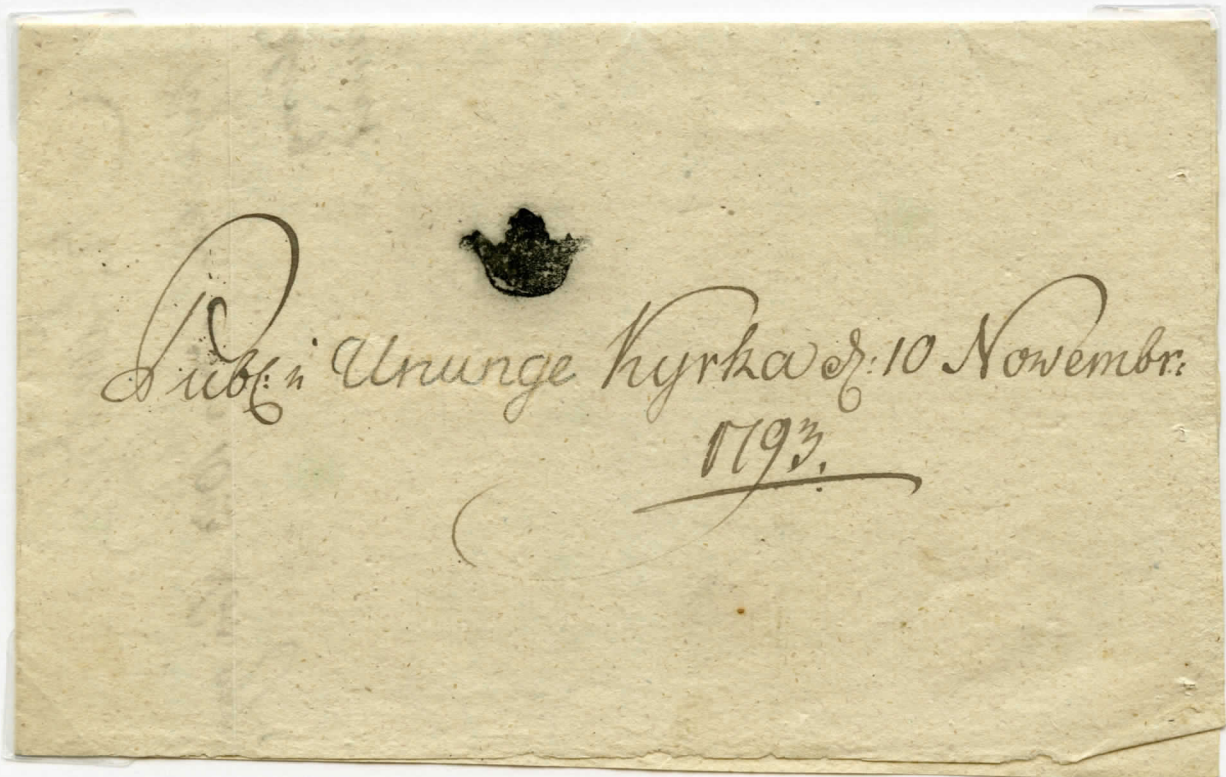 Publ: i Ununge Kyrka d: 10 Nowembr:
1793.